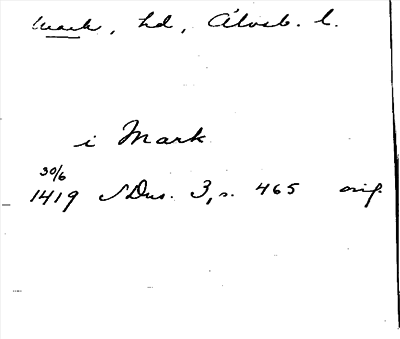 Mark, hd, Älvsb. l.
i Mark
30/6
1419 SDns. 3, s. 465 orig.